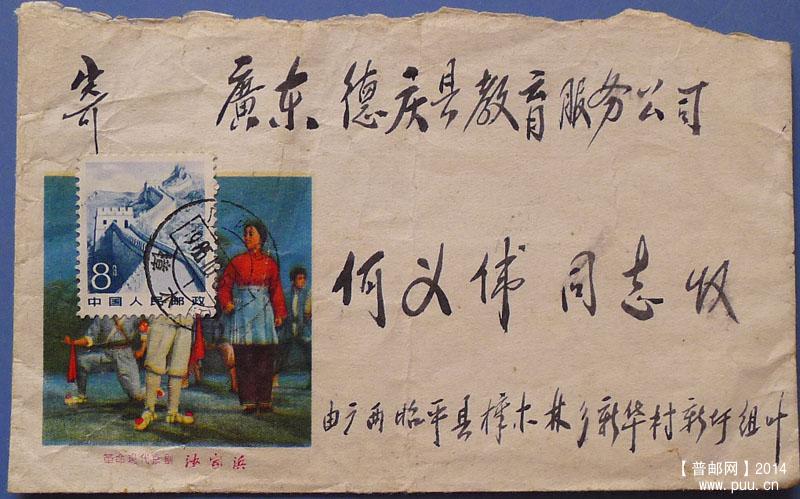 寄 廣东德庆县教育服务公司
8分
中国人民邮政
何义伟同志收
由广西临平县樟木林乡新华村新圩组叶
革命现代京剧 沙家浜
【普邮网】2014
www.puu.cn